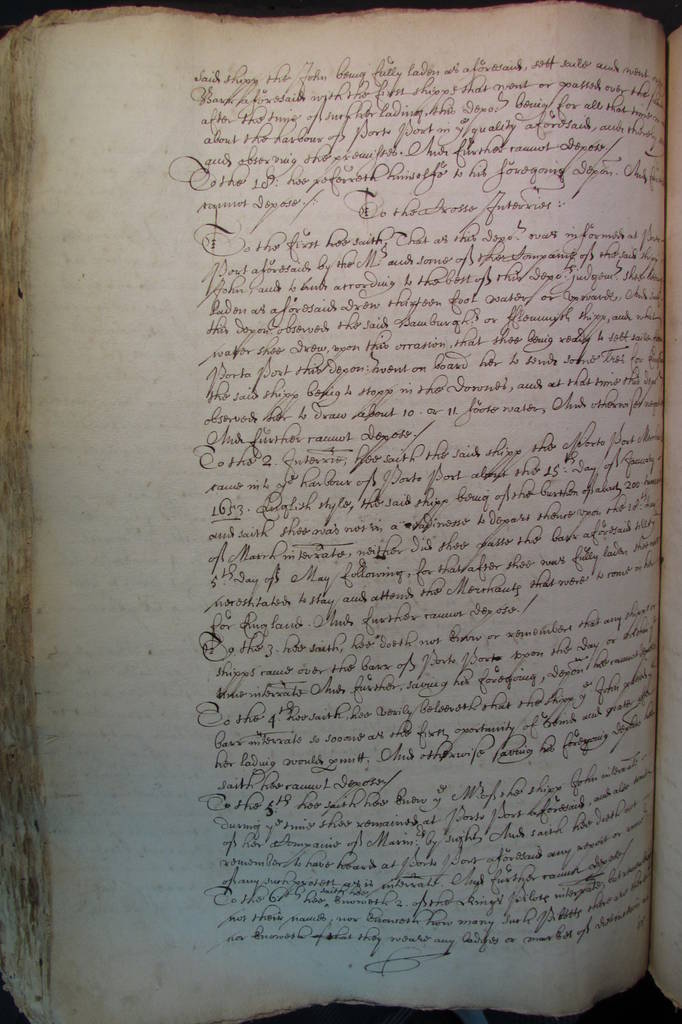 said shipp the John being fully laden as aforesaid, sett saile and went
Barr aforesaid with the first shipps that went or passed over the said
after the tyme of such her lading, this depot being for all that time
about the harbour of Porto Port in ye quality aforesaid, and thereby
and observing the premisses. And further cannot depose./
To the 18th hee referreth himselfe to his foregoing depon. And further
cannot depose./.
To the Crosse Interries:
To the first hee saith, That as this depot was informed at Porto
Port aforesaid by the Mr and some of the Companie of the said shipp
John, and to and according to the best of this depots judgemt shee being
laden as aforesaid drew thirteen foot water or upwards, And saith
this depont observed the said hamburgh or fflemmish shipp, and what
water shee drew, upon this occasion, that shee being ready to sett saile from
Porto Port this depont went on board her to send some lres for England
the said shipp being to stopp in the Downes, and at that time this depot
observed her to draw about 10. or 11 foote water, And otherwise
And further cannot depose./
To the 2. Interrie, hee saith the said shipp the Porto Port Merchant
came into ye harbour of Porto Port about the 15th day of January
1653. English style, the said shipp being of the burthen of about 200 tonnes
and saith shee was not in a readinesse to depart thence upon the 18th day
of March interrate, neither did shee passe the barr aforesaid till
5th day of May following, for that after shee was fully laden shee was
necessitated to stay and attend the Merchants that were to come in her
for England. And further cannot depose./
To the 3. hee saith, hee doeth not know or remember that any shipp or
shipps came over the barr of Porto Porto upon the day or
time interrate And further, saving his foregoing depon hee cannot depose
To the 4th hee saith, hee verily beleeveth that the shipp ye John passed
barr interrate so soone as the first oportunity of winds and water after
her lading would permitt, And otherwise saving his foregoing depon hee
saith hee cannot depose/
To the 5th hee saith hee knew ye Mr of the shipp John interrate
during ye time shee remained at Porto Port aforesaid, and also some
of her Companie of Marinrs by sight, And saith hee doeth not
remember to have heard at Porto Port aforesaid any report or
of any such protest as is interrate. And further cannot depose/
To the 6th hee saith hee knoweth 2. of the Kings Pilots interrate, but
not their names, nor knoweth how many such Pilotts there are
nor knoweth that they weare any badges or markes of distinction